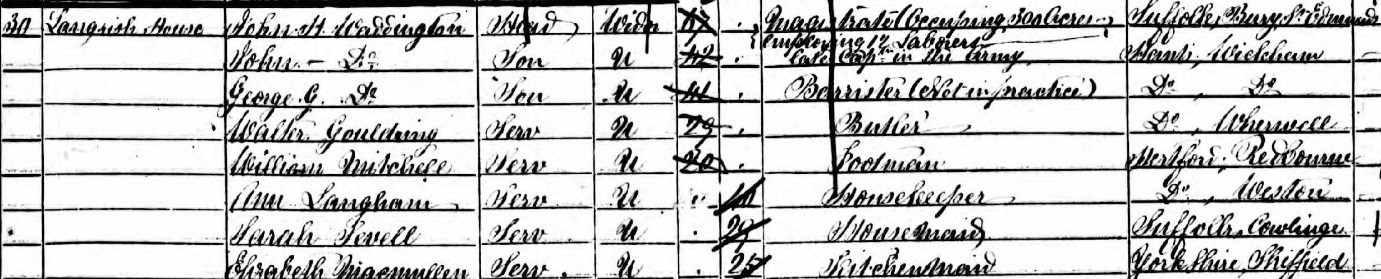 30 Langrish House John H Waddington Head Widr Magistrate (Occupying 300 Acres Suffolk, Bury St Edmunds
employing 12 Laborers
John - Do Son U 42 late Captn in the Army Hants, Wickham
George G. Do Son U 41 Barrister (Not in practice) Do, Do
Walter Goulding Serv U 29 Butler Do, Wherwell
William Mitchell Serv U 20 Footman Hertford, Redbourn
Ann Langham Serv U Housekeeper Do, Weston
Sarah Sevell Serv U 29 Housemaid Suffolk, Cowlinge
Elizabeth Macmullen Serv U 25 Kitchenmaid Yorkshire, Sheffield